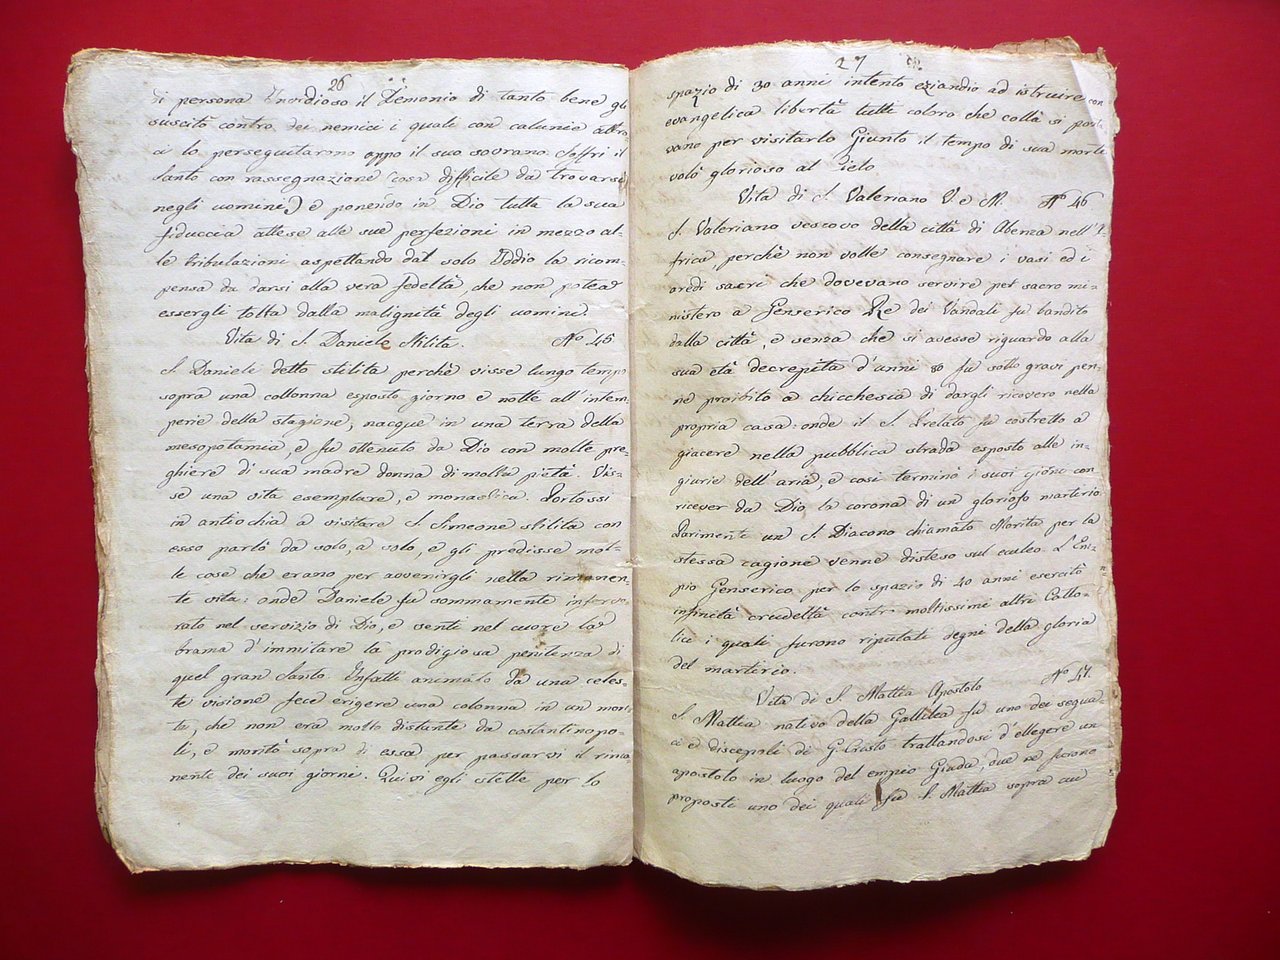 26
di persona Invidioso il Demonio di tanto bene gli
suscitò contro dei nemici i quali con calunie
a lo perseguitarono appo il suo sovrano. Soffrì il
Santo con rassegnazione (cosa difficile da trovarsi
negli uomini) e ponendo in Dio tutta la sua
fiduccia attese alle sue perfezioni in mezzo al-
le tribulazioni aspettando dal solo Iddio la ricom-
pensa da darsi alla vera fedeltà, che non potea
essergli tolta dalla malignità degli uomini.
Vita di S. Daniele Stilita. No 45
S. Daniele detto stilita perchè visse lungo tempo
sopra una collonna esposto giorno e notte all'intem
perie della stagione, nacque in una terra della
mesopotamia, e fu ottenuto da Dio con molte pre
ghiere di sua madre donna di molta pietà. Vis-
se una vita esemplare, e monastica. Portossi
in antiochia a visitare S. Simeone stilita con
esso parlò da solo, a solo, e gli predisse mol-
te cose che erano per avvenirgli nella rimanen
te vita: onde Daniele fu sommamente infervo-
rato nel servizio di Dio, e sentì nel cuore la
brama d'immitare la prodigiosa penitenza di
quel gran Santo. Infatti animato da una celes-
te visione fece erigere una colonna in un mon
te, che non era molto distante da costantinopo-
li, e montò sopra di essa per passarvi il rima
nente dei suoi giorni. Quivi egli stette per lo
27
spazio di 30 anni intento eziandio ad istruire con
evangelica libertà tutti coloro che collà si porta
vano per visitarlo Giunto il tempo di sua morte
volò glorioso al Cielo
Vita di S. Valeriano V. e M. No 46
S. Valeriano vescovo della città di Abenza nell'A
frica, perchè non volle consegnare i vasi ed i
aredi sacri che dovevano servire pel sacro mi-
nistero a Genserico Re dei Vandali fu bandito
dalla città, e senza che si avesse riguardo alla
sua età decrepita d'anni 80 fu sotto gravi pen-
ne proibito a chicchesia di dargli ricovero nella
propria casa: onde il S. Prelato fu costretto a
giacere nella pubblica strada esposto alle in-
giurie dell'aria, e così terminò i suoi giorni con
ricever da Dio la corona di un glorioso martirio
Parimente un S. Diacono chiamato Morita per la
stessa cagione venne disteso sul euleo. L'Em-
pio Genserico per lo spazio di 40 anni esercitò
infinità crudeltà contro moltissimi altri Catto-
lici i quali furono riputati degni della gloria
del martirio.
Vita di S. Mattia Apostolo No 47.
S. Mattia nativo della Gallilea fu uno dei segua-
ci e discepoli di G. Cristo trattandosi d'ellegere un
apostolo in luogo del empio Giuda, due ne furono
proposti uno dei quali fu S. Mattia sopra cui